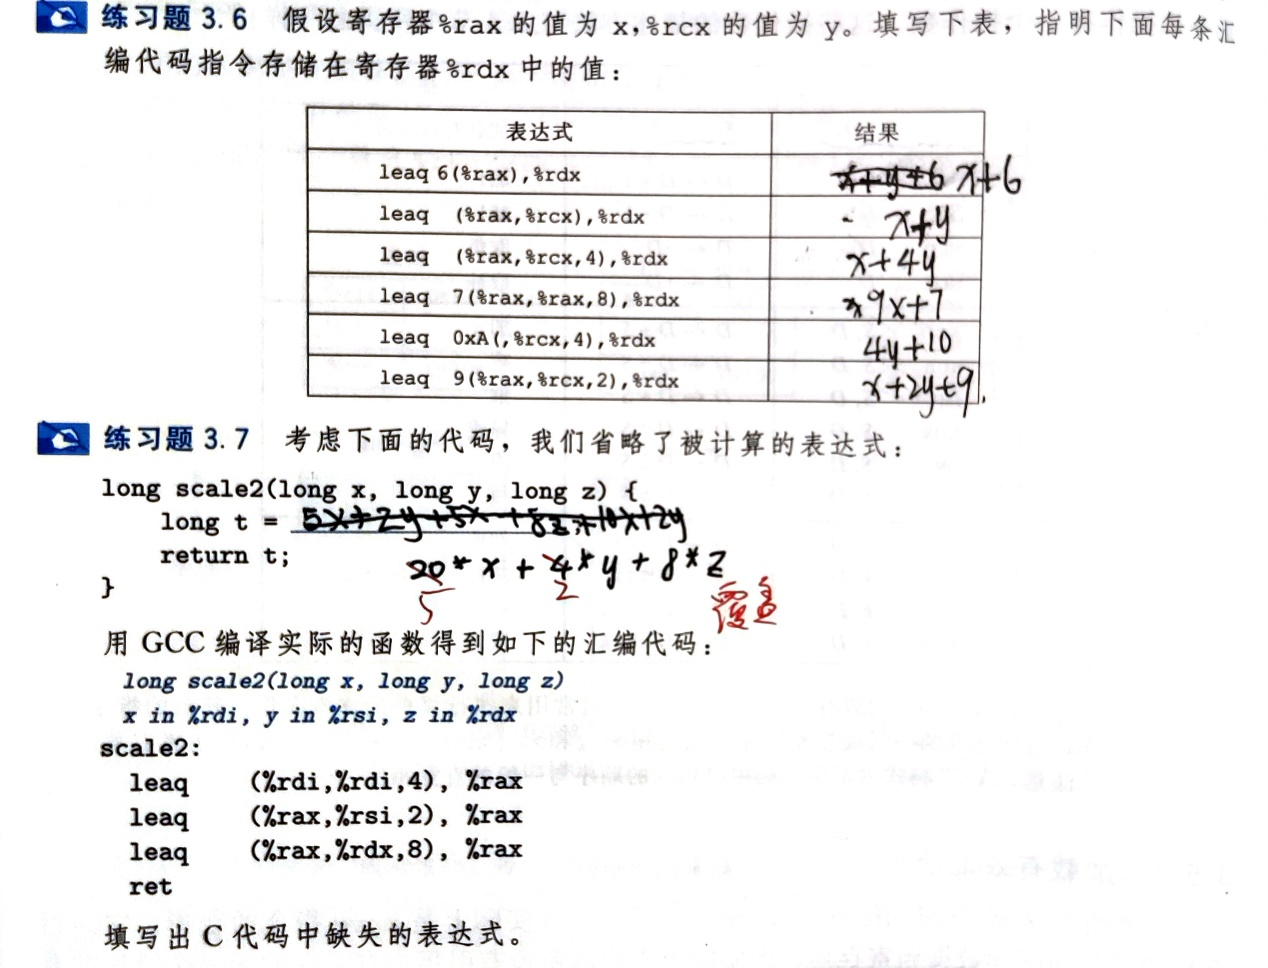 练习题 3.6 假设寄存器%rax 的值为 x,%rcx 的值为 y。填写下表，指明下面每条汇
编代码指令存储在寄存器%rdx 中的值：
表达式 结果
leaq 6(%rax),%rdx x+y+6 x+6
leaq (%rax,%rcx),%rdx x+y
leaq (%rax,%rcx,4),%rdx x+4y
leaq 7(%rax,%rax,8),%rdx 9x+7
leaq 0xA(,%rcx,4),%rdx 4y+10
leaq 9(%rax,%rcx,2),%rdx x+2y+9.
练习题 3.7 考虑下面的代码，我们省略了被计算的表达式：
long scale2(long x, long y, long z) {
long t = 5x+2y+5x+8z+10x+2y
return t;
20*x+4*y+8*z
}
5 2 覆盖
用 GCC 编译实际的函数得到如下的汇编代码：
long scale2(long x, long y, long z)
x in %rdi, y in %rsi, z in %rdx
scale2:
leaq (%rdi,%rdi,4), %rax
leaq (%rax,%rsi,2), %rax
leaq (%rax,%rdx,8), %rax
ret
填写出 C 代码中缺失的表达式。